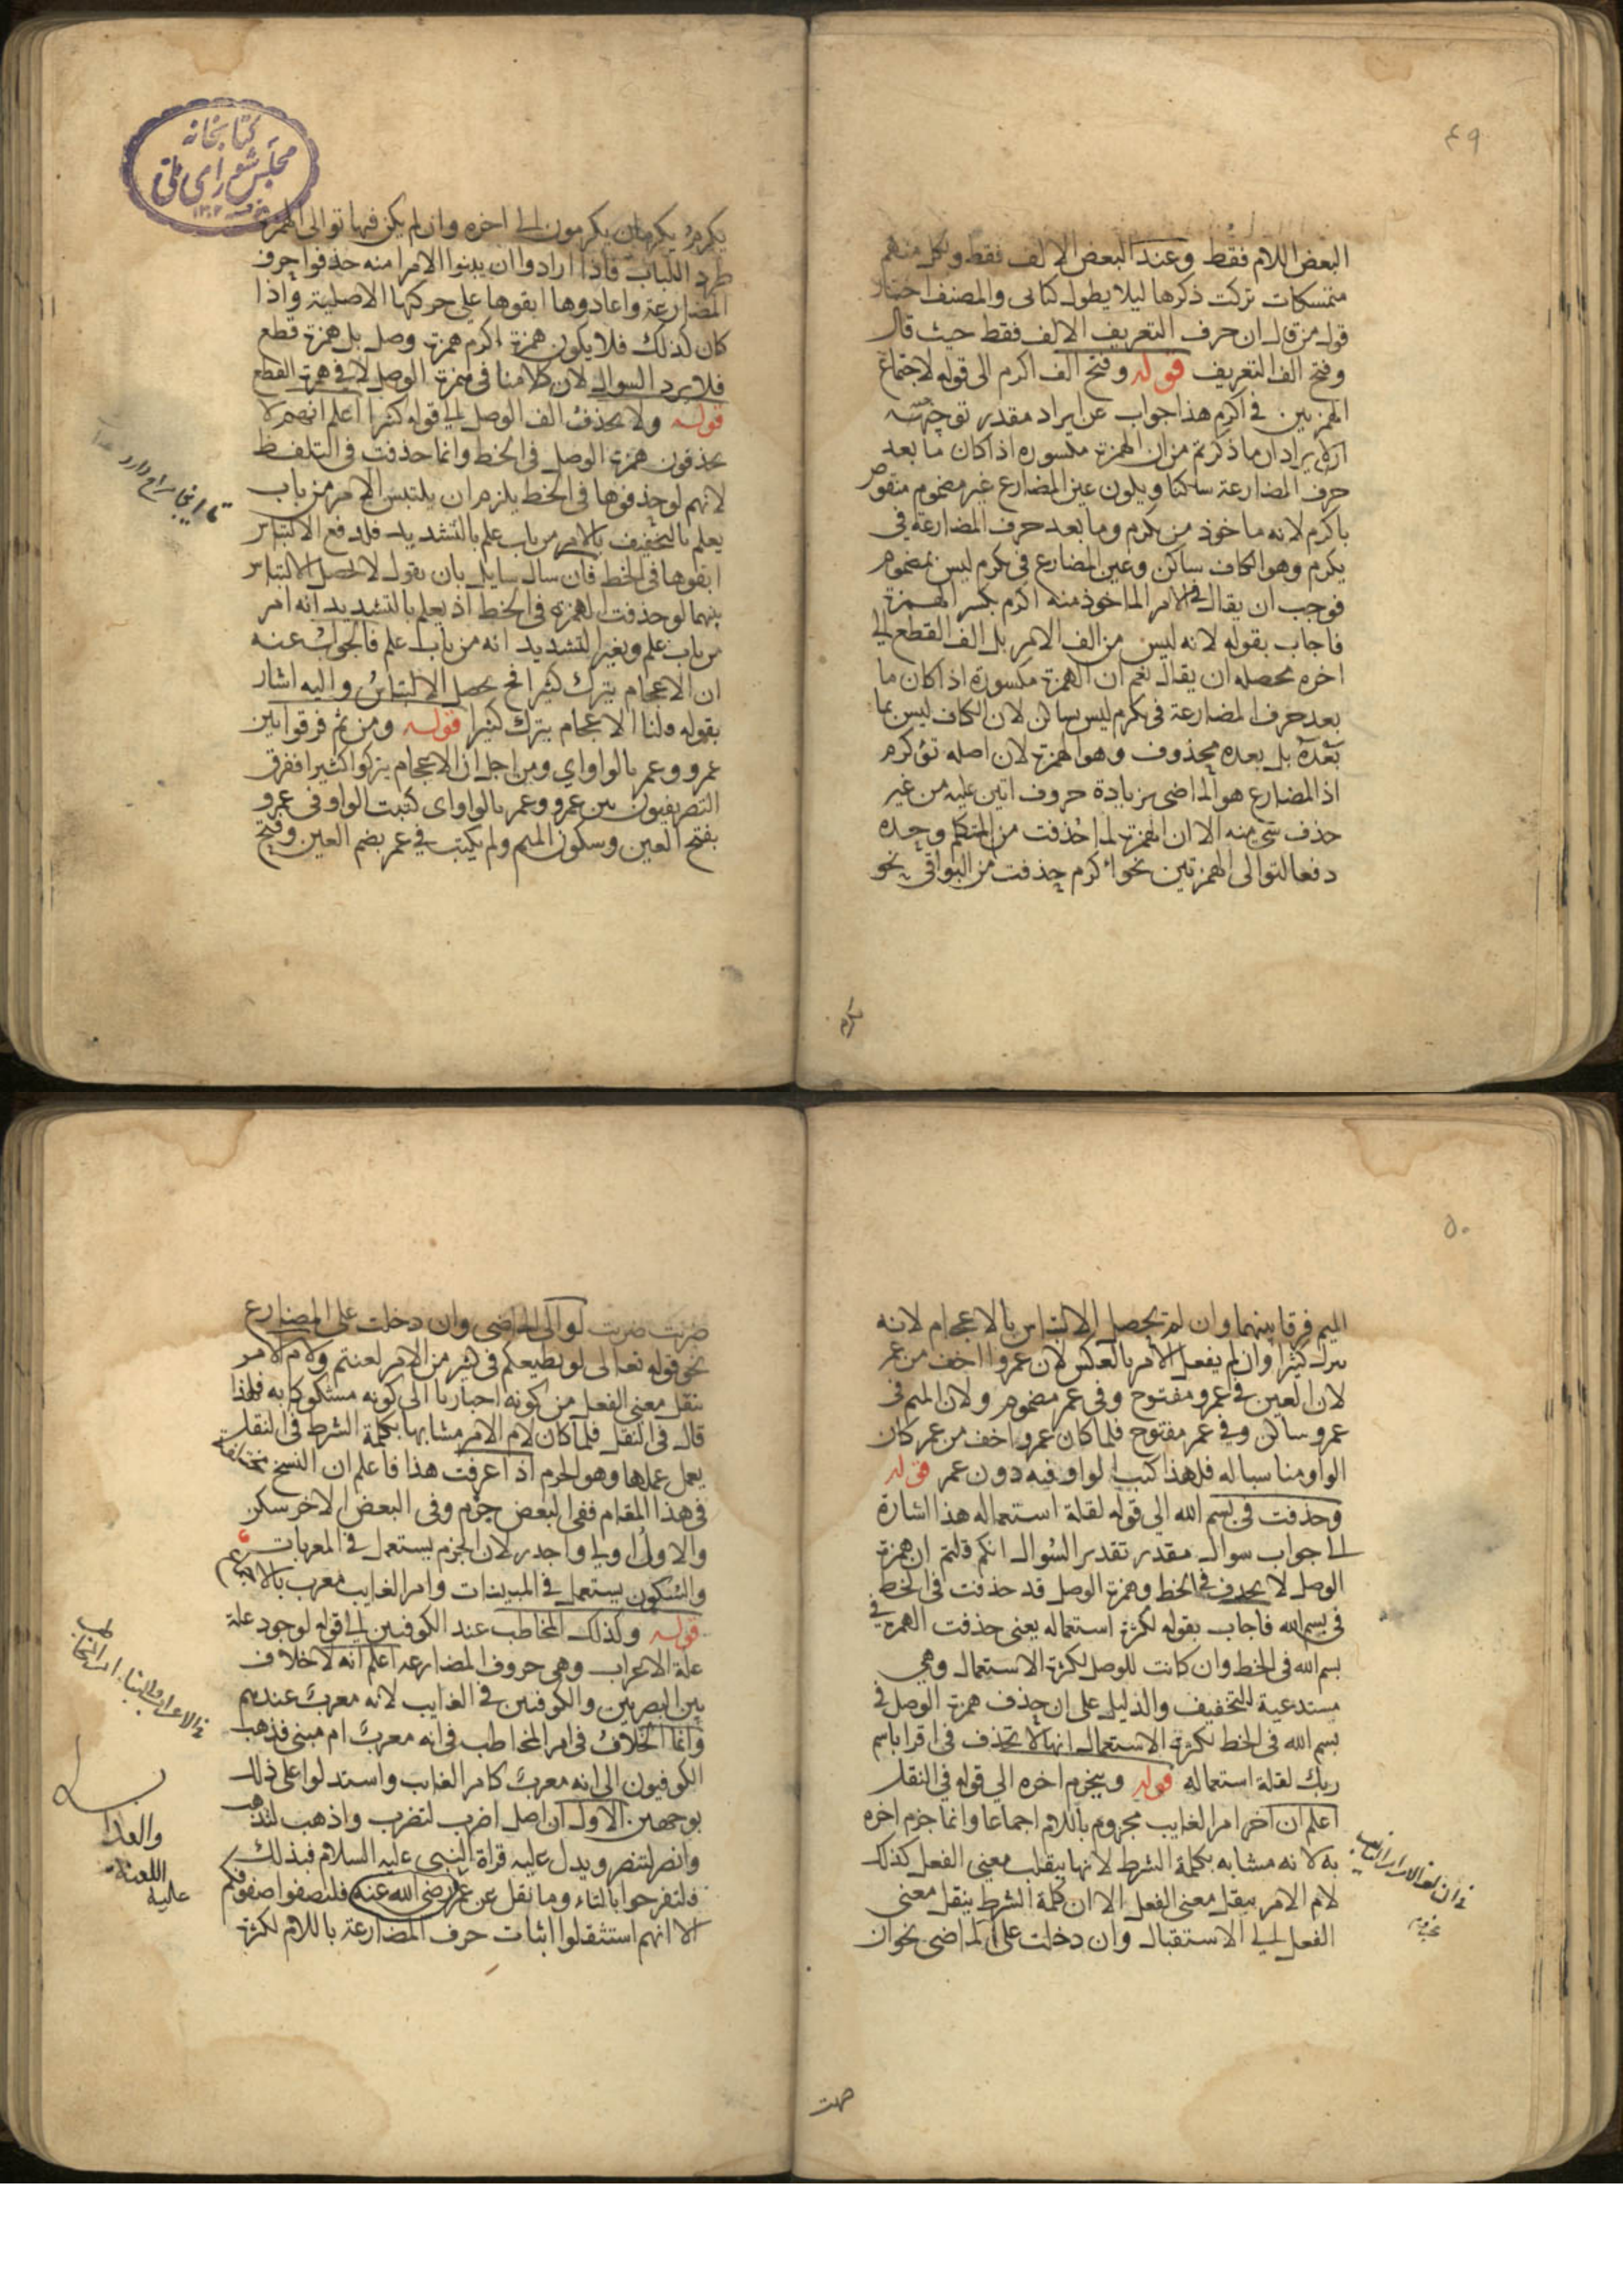 ٤٩
البعض اللام فقط وعند البعض الالف فقط ولكل منهم
متمسكات تركت ذكرها ليلا يطول كتابى والمصنف اختار
قول من قال ان حرف التعريف الالف فقط حيث قال
وفتح الف التعريف قوله وفتح الف اكرم الى قوله لاجتماع
الهمزتين فى اكرم هذا جواب عن ايراد مقدر توجيه
الايراد ان ما ذكرتم من ان الهمزة مكسورة اذا كان ما بعد
حرف المضارعة ساكنا ويكون عين المضارع غير مضموم منقوض
باكرم لانه ماخوذ من يكرم وما بعد حرف المضارعة فى
يكرم وهو الكاف ساكن وعين المضارع فى يكرم ليس بمضموم
فوجب ان يقال فى الامر الماخوذ منه اكرم بكسر الهمزة
فاجاب بقوله لانه ليس من الف الامر بل الف القطع الى
اخره محصله ان يقال نعم ان الهمزة مكسورة اذا كان ما
بعد حرف المضارعة فى يكرم ليس ساكن لان الكاف ليس بما
بعده بل بعده محذوف وهو الهمزة لان اصله تؤكرم
اذ المضارع هو الماضى بزيادة حروف اتين عليه من غير
حذف شى منه الا ان الهمزة لما حذفت من المتكلم وحده
دفعا لتوالى الهمزتين نحو اءكرم حذفت من البواقى نحو
يكرم
يكرم يكرمان يكرمون الى اخره وان لم يكن فيها توالى الهمزة
طرد اللباب فاذا ارادوا ان يبنوا الامر منه حذفوا حرف
المضارعة واعادوها ابقوها على حركتها الاصلية واذا
كان كذلك فلا يكون همزة اكرم همزة وصل بل همزة قطع
فلا يرد السوال لان كلامنا فى همزة الوصل لا فى همزة القطع
قوله ولا يحذف الف الوصل الى قوله كثيرا اعلم انهم لا
يحذفون همزة الوصل فى الخط وانما حذفت فى التلفظ
لانهم لو حذفوها فى الخط يلزم ان يلتبس الامر من باب
يعلم بالتخفيف بالامر من باب علم بالتشديد فلدفع الالتباس
ابقوها فى الخط فان سال سايل بان يقول لا يحصل الالتباس
بينهما لو حذفت الهمزة فى الخط اذ يعلم بالتشديد انه امر
من باب علم وبغير التشديد انه من باب علم فالجواب عنه
ان الاعجام يترك كثيرا فح يحصل الالتباس واليه اشار
بقوله قلنا الاعجام يترك كثيرا قوله ومن ثم فرقوا بين
عمرو وعمر بالواو اي ومن اجل ان الاعجام يتركوا كثيرا ففرق
التصريفيون بين عمرو وعمر بالواو اى كتبت الواو فى عمرو
بفتح العين وسكون الميم ولم يكتب فى عمر بضم العين وفتح
كتابخانه
مجلس شوراى ملى
١٣٠٢
٥٠
الميم فرقا بينهما وان لم يحصل الالتباس بالاعجام لانه
يترك كثيرا وان لم يفعل الامر بالعكس لان عمروا اخف من عمر
لان العين فى عمرو مفتوح وفى عمر مضموم ولان الميم فى
عمرو ساكن وفى عمر مفتوح فلما كان عمرو اخف من عمر كان
الواو مناسبا له فلهذا كتب الواو فيه دون عمر قوله
وحذفت فى بسم الله الى قوله لقلة استعماله هذا اشارة
الى جواب سوال مقدر تقدير السوال انكم قلتم ان همزة
الوصل لا يحذف فى الخط وهمزة الوصل قد حذفت فى الخط
فى بسم الله فاجاب بقوله لكثرة استعماله يعنى حذفت الهمزة فى
بسم الله فى الخط وان كانت للوصل لكثرة الاستعمال وهى
مستدعية للتخفيف والدليل على ان حذف همزة الوصل فى
بسم الله فى الخط لكثرة الاستعمال انها لا تحذف فى اقرا باسم
ربك لقلة استعماله قوله وينجزم اخره الى قوله فى النقل
اعلم ان اخر امر الغايب مجزوم باللام اجماعا وانما جزم اخره
به لانه مشابه بكلمة الشرط لانها ينقل معنى الفعل كذلك
لام الامر ينقل معنى الفعل الا ان كلمة الشرط ينقل معنى
الفعل الى الاستقبال وان دخلت على الماضى نحو ان
ضربت
ضربت ضربت لو الى الماضى وان دخلت على المضارع
نحو قوله تعالى لو يطيعكم فى كثير من الامر لعنتم ولام الامر
ينقل معنى الفعل من كونه اخباريا الى كونه مشكوكا به فلهذا
قال فى النقل فلما كان لام الامر مشابها بكلمة الشرط فى النقل
يعمل عملها وهو الجزم اذا عرفت هذا فاعلم ان النسخ مختلفة
فى هذا المقام ففى البعض جزم وفى البعض الاخر سكن
والاول اولى واجدر لان الجزم يستعمل فى المعربات
والسكون يستعمل فى المبينات وامر الغايب معرب بالاجماع
قوله وكذلك المخاطب عند الكوفيين الى قوله لوجود علة
علة الاعراب وهى حروف المضارعه اعلم انه لا خلاف
بين البصريين والكوفيين فى الغايب لانه معرب عندهم
وانما الخلاف فى امر المخاطب فى انه معرب ام مبنى فذهب
الكوفيون الى انه معرب كامر الغايب واستدلوا على ذلك
بوجهين الاول ان اصل اضرب لتضرب واذهب لتذهب
وانصر لتنصر ويدل عليه قراة النبى عليه السلام فبذلك
فلتفرحوا بالتاء وما نقل عن عمر رضى الله عنه فلتصفوا صفوفكم
الا انهم استثقلوا اثبات حرف المضارعة باللام لكثرة
والعذاب
اللعنة
عليه